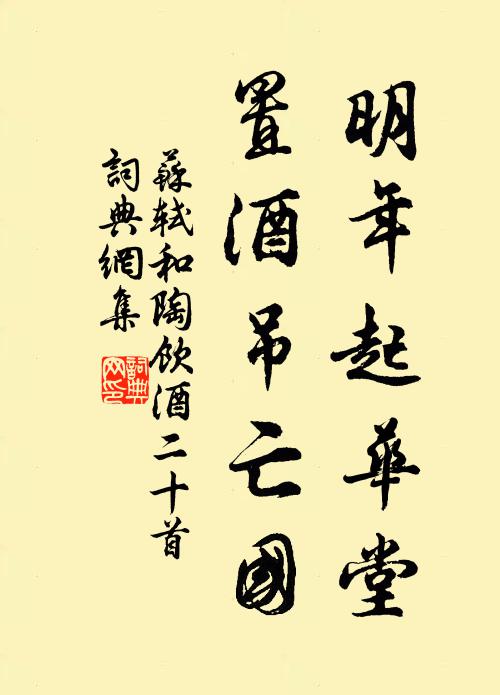 明年起華堂
置酒吊亡國
蘇軾和陶飲酒二十首
詞典網集
詞典網印